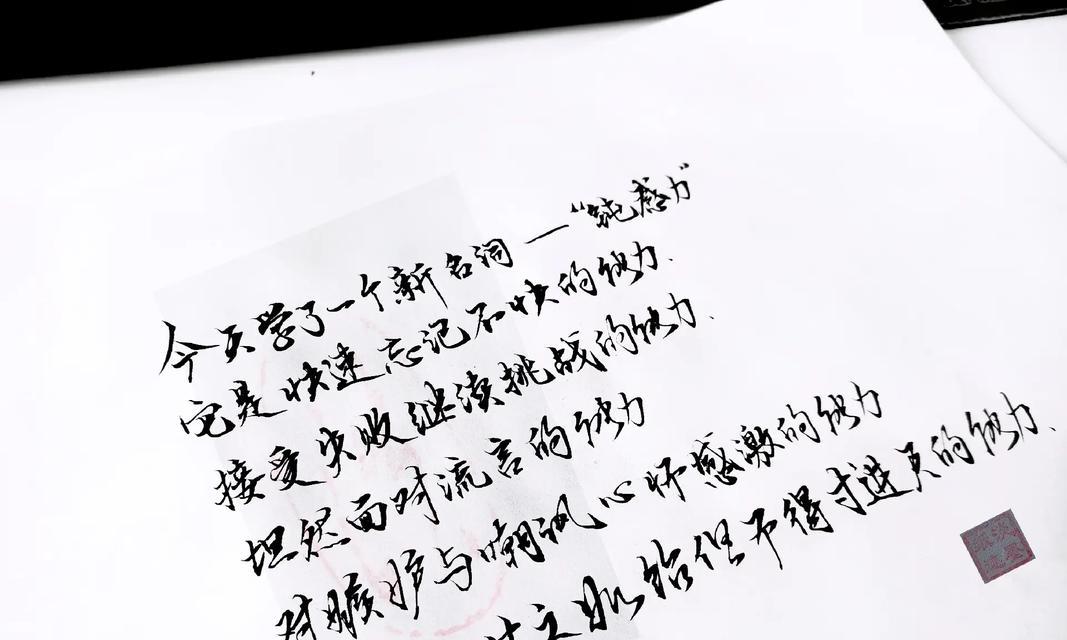 今天学了一个新名词—“钝感力”
它是快速忘记不快的能力.
接受失败继续挑战的能力.
坦然面对流言的能力
对嫉妒与嘲讽心怀感激的能力
但不得寸进尺的能力.